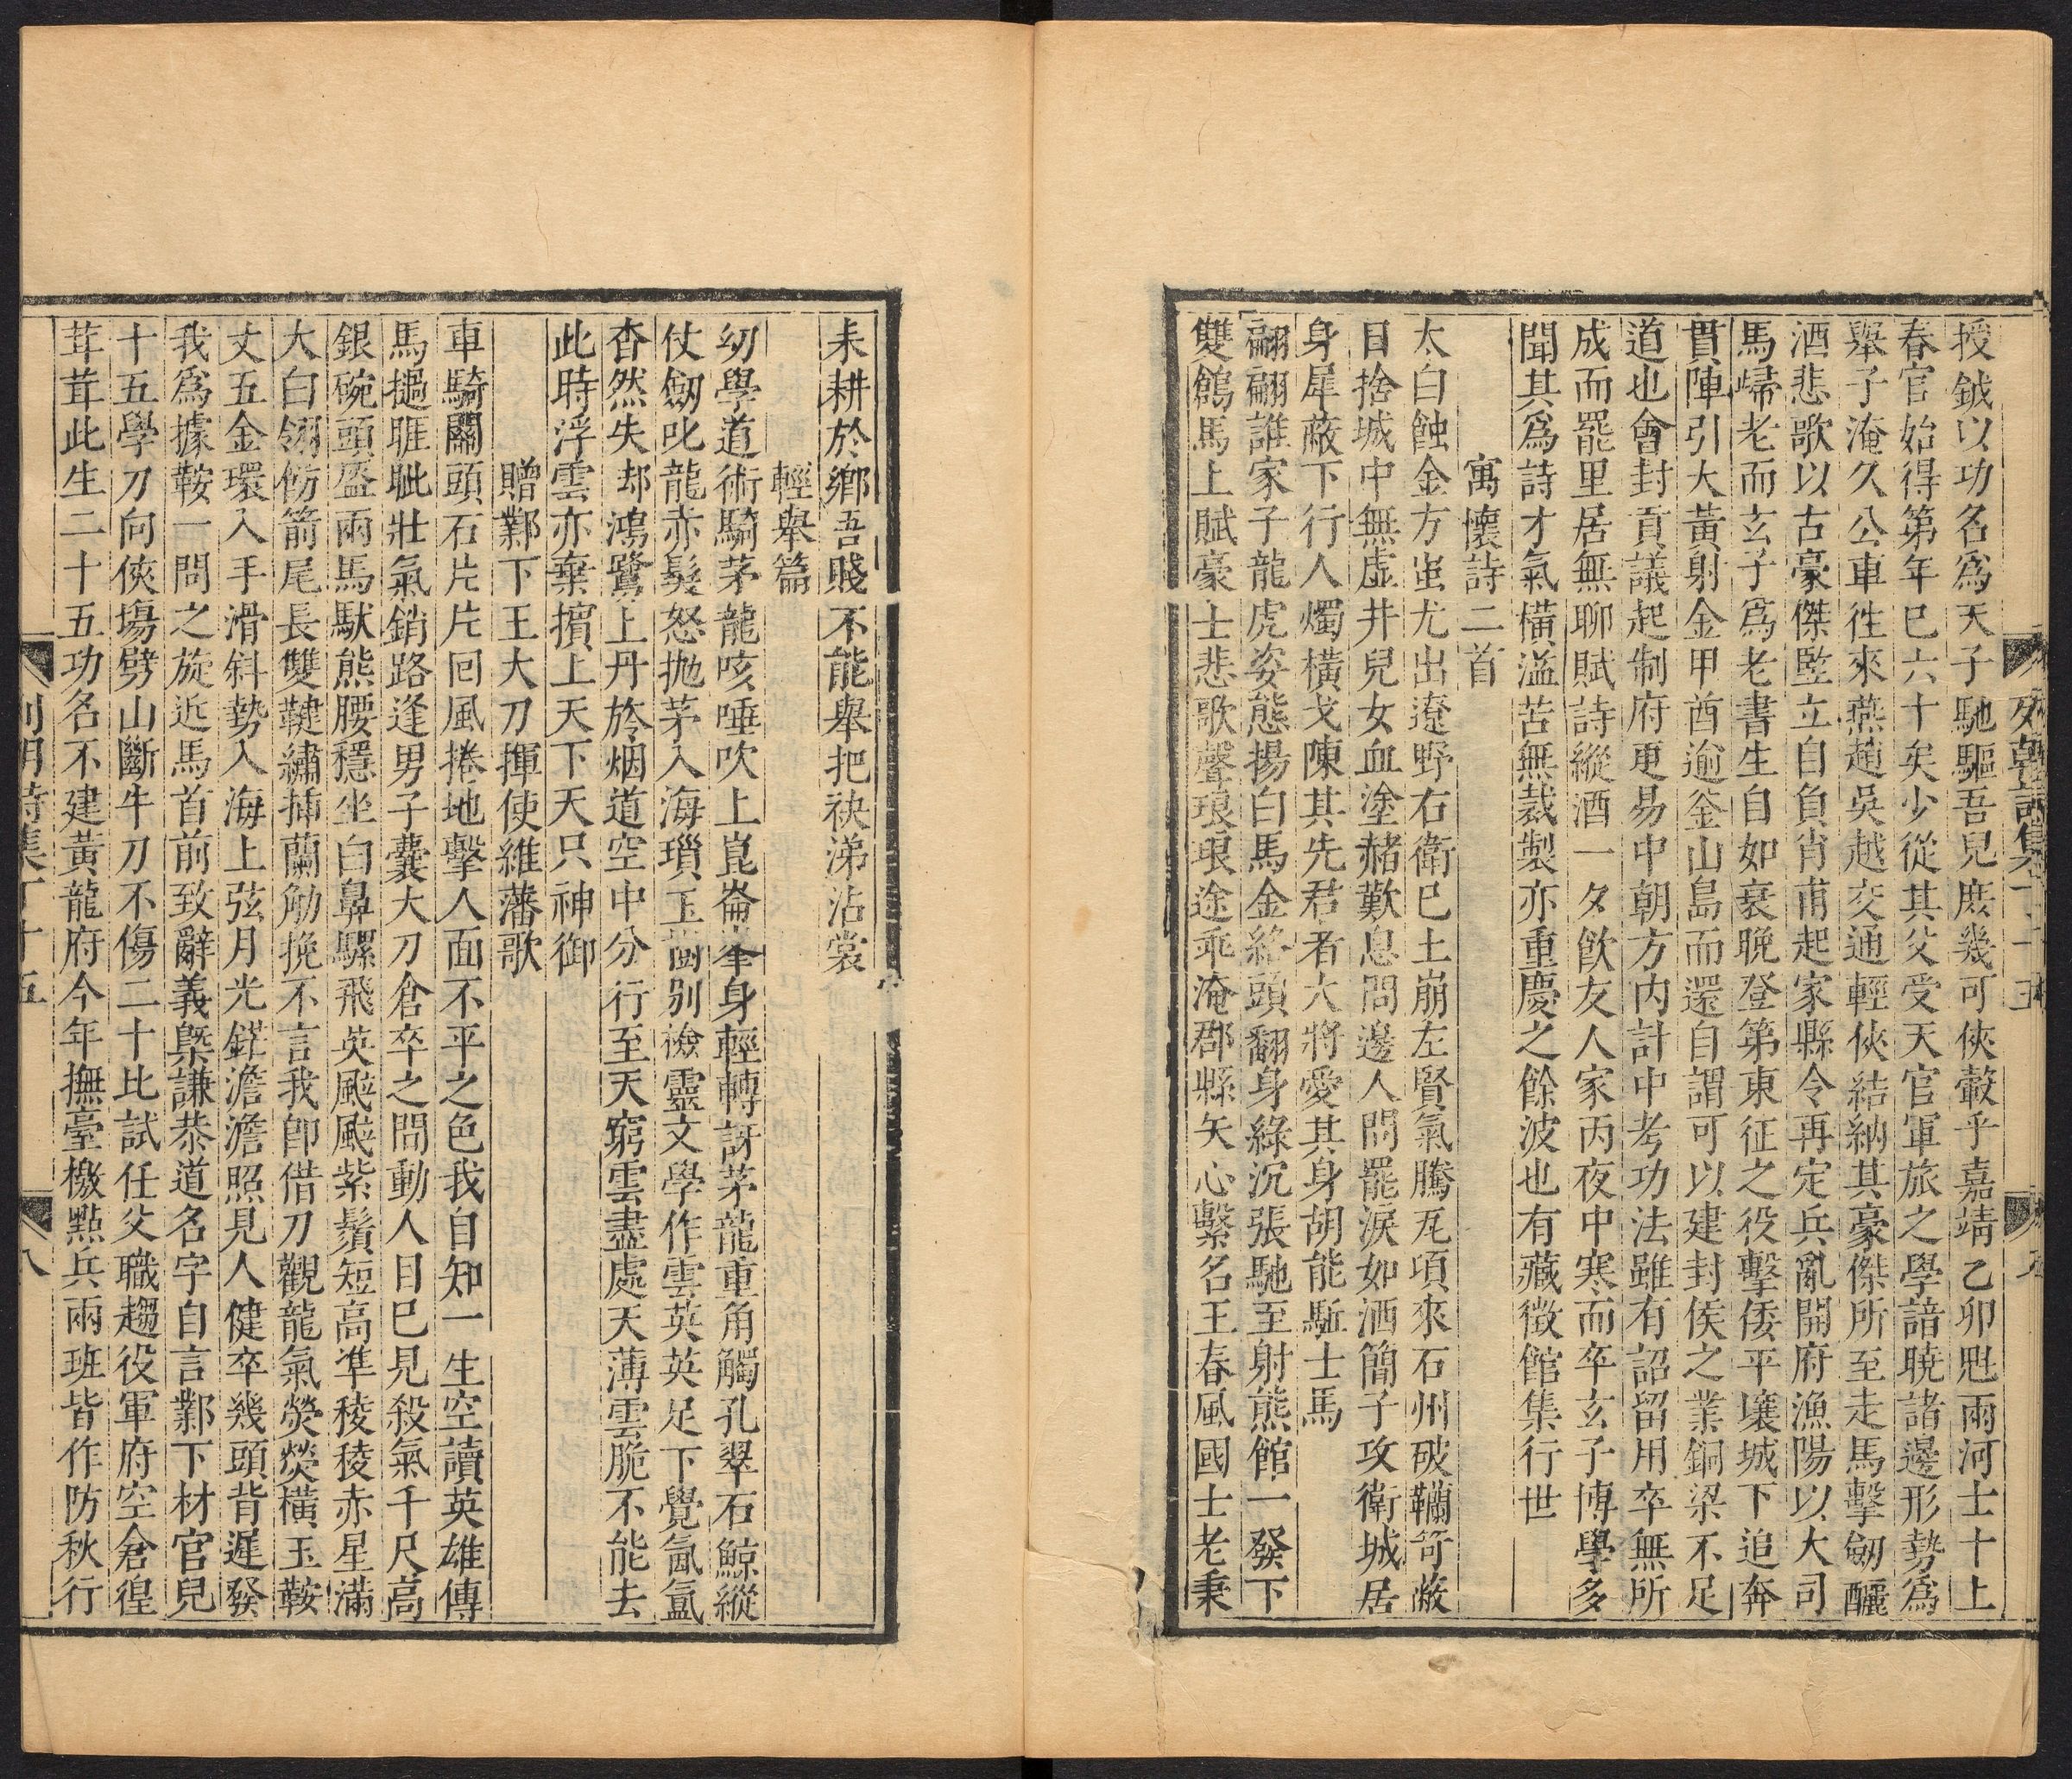 授鉞以功名爲天子馳驅吾兒庶幾可俠轂乎嘉靖乙卯魁兩河士十上
春官始得第年已六十矣少從其父受天官軍旅之學諳曉諸邊形勢爲
舉子淹久公車徃來燕趙吳越交通輕俠結納其豪傑所至走馬擊劒釃
酒悲歌以古豪傑竪立自負肖甫起家縣令再定兵亂開府漁陽以大司
馬歸老而玄子爲老書生自如衰晚登第東征之役擊倭平壤城下追奔
貫陣引大黃射金甲酋逾釜山島而還自謂可以建封侯之業銅梁不足
道也會封貢議起制府更易中朝方内計中考功法雖有詔留用卒無所
成而罷里居無聊賦詩縱酒一夕飲友人家丙夜中寒而卒玄子博學多
聞其爲詩才氣橫溢苦無裁製亦重慶之餘波也有藏徴館集行世
寓懷詩二首
太白蝕金方蚩尤出遼野右衛已土崩左賢氣騰瓦項來石州破韊笴蔽
目捨城中無虛井兒女血塗赭歎息問邊人問罷淚如洒簡子攻衛城居
身犀蔽下行人燭橫戈陳其先君者大將愛其身胡能駈士馬
翩翩誰家子龍虎姿態揚白馬金絡頭翻身綠沉張馳至射熊館一發下
雙鶬馬上賦豪士悲歌聲琅琅途乖淹郡縣矢心繫名王春風國士老秉
耒耕於鄉吾賤不能舉把袂涕沾裳
輕舉篇
幼學道術騎茅龍咳唾吹上崑崙峯身輕轉訝茅龍重角觸孔翠石鯨縱
仗劒叱龍赤髮怒拋茅入海瑣玉崗别檢靈文學作雲英英足下覺氤氳
杳然失却鴻鷺上丹於烟道空中分行至天窮雲盡處天薄雲脆不能去
此時浮雲亦棄擯上天下天只神御
贈鄴下王大刀揮使維藩歌
車騎關頭石片片回風捲地擊人面不平之色我自知一生空讀英雄傳
馬撾睚眦壯氣銷路逢男子櫜大刀倉卒之間動人目已見殺氣千尺高
銀碗頭盔兩馬馱熊腰穩坐白鼻騧飛英颭颭紫鬚短高準稜稜赤星滿
大白翎餝箭尾長雙鞬繡揷蘭觔挽不言我卽借刀觀龍氣熒熒橫玉鞍
丈五金環入手滑斜勢入海上弦月光鋩澹澹照見人健卒幾頭背遲發
我爲據鞍一問之旋近馬首前致辭義槩謙恭道名字自言鄴下材官兒
十五學刀向俠塲劈山斷牛刀不傷二十比試任父職趨役軍府空倉徨
茸茸此生二十五功名不建黃龍府今年撫臺檄點兵兩班皆作防秋行
列朝詩集丁十五
八